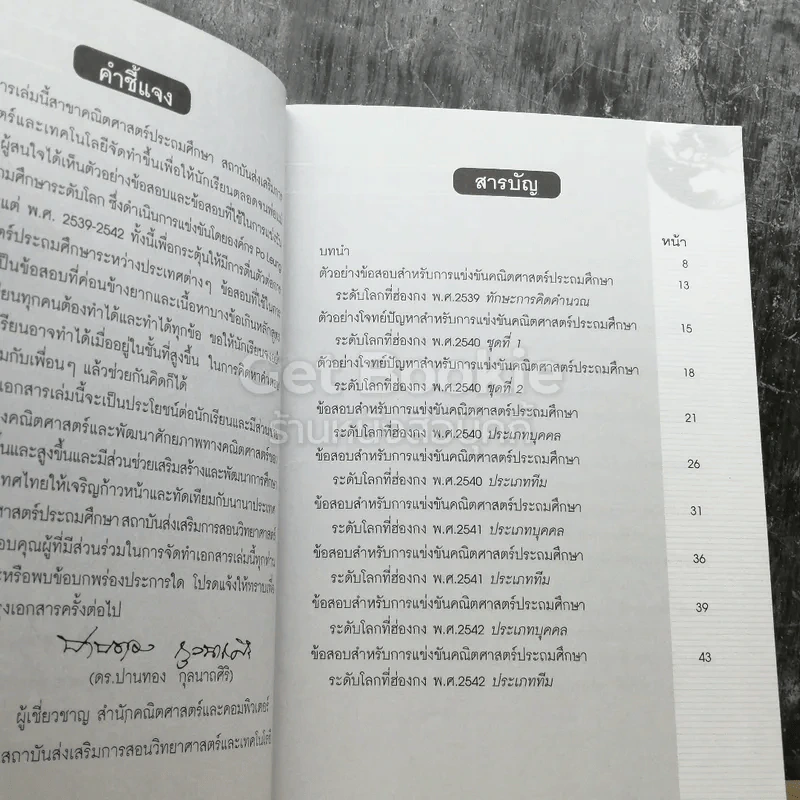 คำชี้แจง
ารเล่มนี้สาขาคณิตศาสตร์ประถมศึกษา สถาบันส่งเสริมการ
ตร์และเทคโนโลยีจัดทำขึ้นเพื่อให้นักเรียนตลอดจน
ผู้สนใจได้เห็นตัวอย่างข้อสอบและข้อสอบที่ใช้ในการแข่งขัน
ถมศึกษาระดับโลก ซึ่งดำเนินการแข่งขันโดยองค์กร Po Leung
แต่ พ.ศ. 2539-2542 ทั้งนี้เพื่อกระตุ้นให้มีการตื่นตัวต่อการ
ตร์ประถมศึกษาระหว่างประเทศต่างๆ ข้อสอบที่ใช้ในการ
เป็นข้อสอบที่ค่อนข้างยากและเนื้อหาบางข้อเกินหลักสูตร
ยนทุกคนต้องทำได้และทำได้ทุกข้อ ขอให้นักเรียน
เรียนอาจทำได้เมื่ออยู่ในชั้นที่สูงขึ้น ในการคิดหาคำตอบ
มกับเพื่อนๆ แล้วช่วยกันคิดก็ได้
เอกสารเล่มนี้จะเป็นประโยชน์ต่อนักเรียนและมีส่วน
งคณิตศาสตร์และพัฒนาศักยภาพทางคณิตศาสตร์ของ
ขึ้นและสูงขึ้นและมีส่วนช่วยเสริมสร้างและพัฒนาการศึกษา
ทศไทยให้เจริญก้าวหน้าและทัดเทียมกับนานาประเทศ
ศาสตร์ประถมศึกษา สถาบันส่งเสริมการสอนวิทยาศาสตร์
อบคุณผู้ที่มีส่วนร่วมในการจัดทำเอกสารเล่มนี้ทุกท่าน
ะหรือพบข้อบกพร่องประการใด โปรดแจ้งให้ทราบเพื่อ
รุงเอกสารครั้งต่อไป
(ดร.ปานทอง กุลนาถศิริ)
ผู้เชี่ยวชาญ สำนักคณิตศาสตร์และคอมพิวเตอร์
สถาบันส่งเสริมการสอนวิทยาศาสตร์และเทคโนโลยี
สารบัญ
หน้า
บทนำ 8
ตัวอย่างข้อสอบสำหรับการแข่งขันคณิตศาสตร์ประถมศึกษา 13
ระดับโลกที่ฮ่องกง พ.ศ.2539 ทักษะการคิดคำนวณ
ตัวอย่างโจทย์ปัญหาสำหรับการแข่งขันคณิตศาสตร์ประถมศึกษา 15
ระดับโลกที่ฮ่องกง พ.ศ.2540 ชุดที่ 1
ตัวอย่างโจทย์ปัญหาสำหรับการแข่งขันคณิตศาสตร์ประถมศึกษา 18
ระดับโลกที่ฮ่องกง พ.ศ.2540 ชุดที่ 2
ข้อสอบสำหรับการแข่งขันคณิตศาสตร์ประถมศึกษา 21
ระดับโลกที่ฮ่องกง พ.ศ.2540 ประเภทบุคคล
ข้อสอบสำหรับการแข่งขันคณิตศาสตร์ประถมศึกษา 26
ระดับโลกที่ฮ่องกง พ.ศ.2540 ประเภททีม
ข้อสอบสำหรับการแข่งขันคณิตศาสตร์ประถมศึกษา 31
ระดับโลกที่ฮ่องกง พ.ศ.2541 ประเภทบุคคล
ข้อสอบสำหรับการแข่งขันคณิตศาสตร์ประถมศึกษา 36
ระดับโลกที่ฮ่องกง พ.ศ.2541 ประเภททีม
ข้อสอบสำหรับการแข่งขันคณิตศาสตร์ประถมศึกษา 39
ระดับโลกที่ฮ่องกง พ.ศ.2542 ประเภทบุคคล
ข้อสอบสำหรับการแข่งขันคณิตศาสตร์ประถมศึกษา 43
ระดับโลกที่ฮ่องกง พ.ศ.2542 ประเภททีม
Get Bookie
ร้านหนังสือบุคกี้